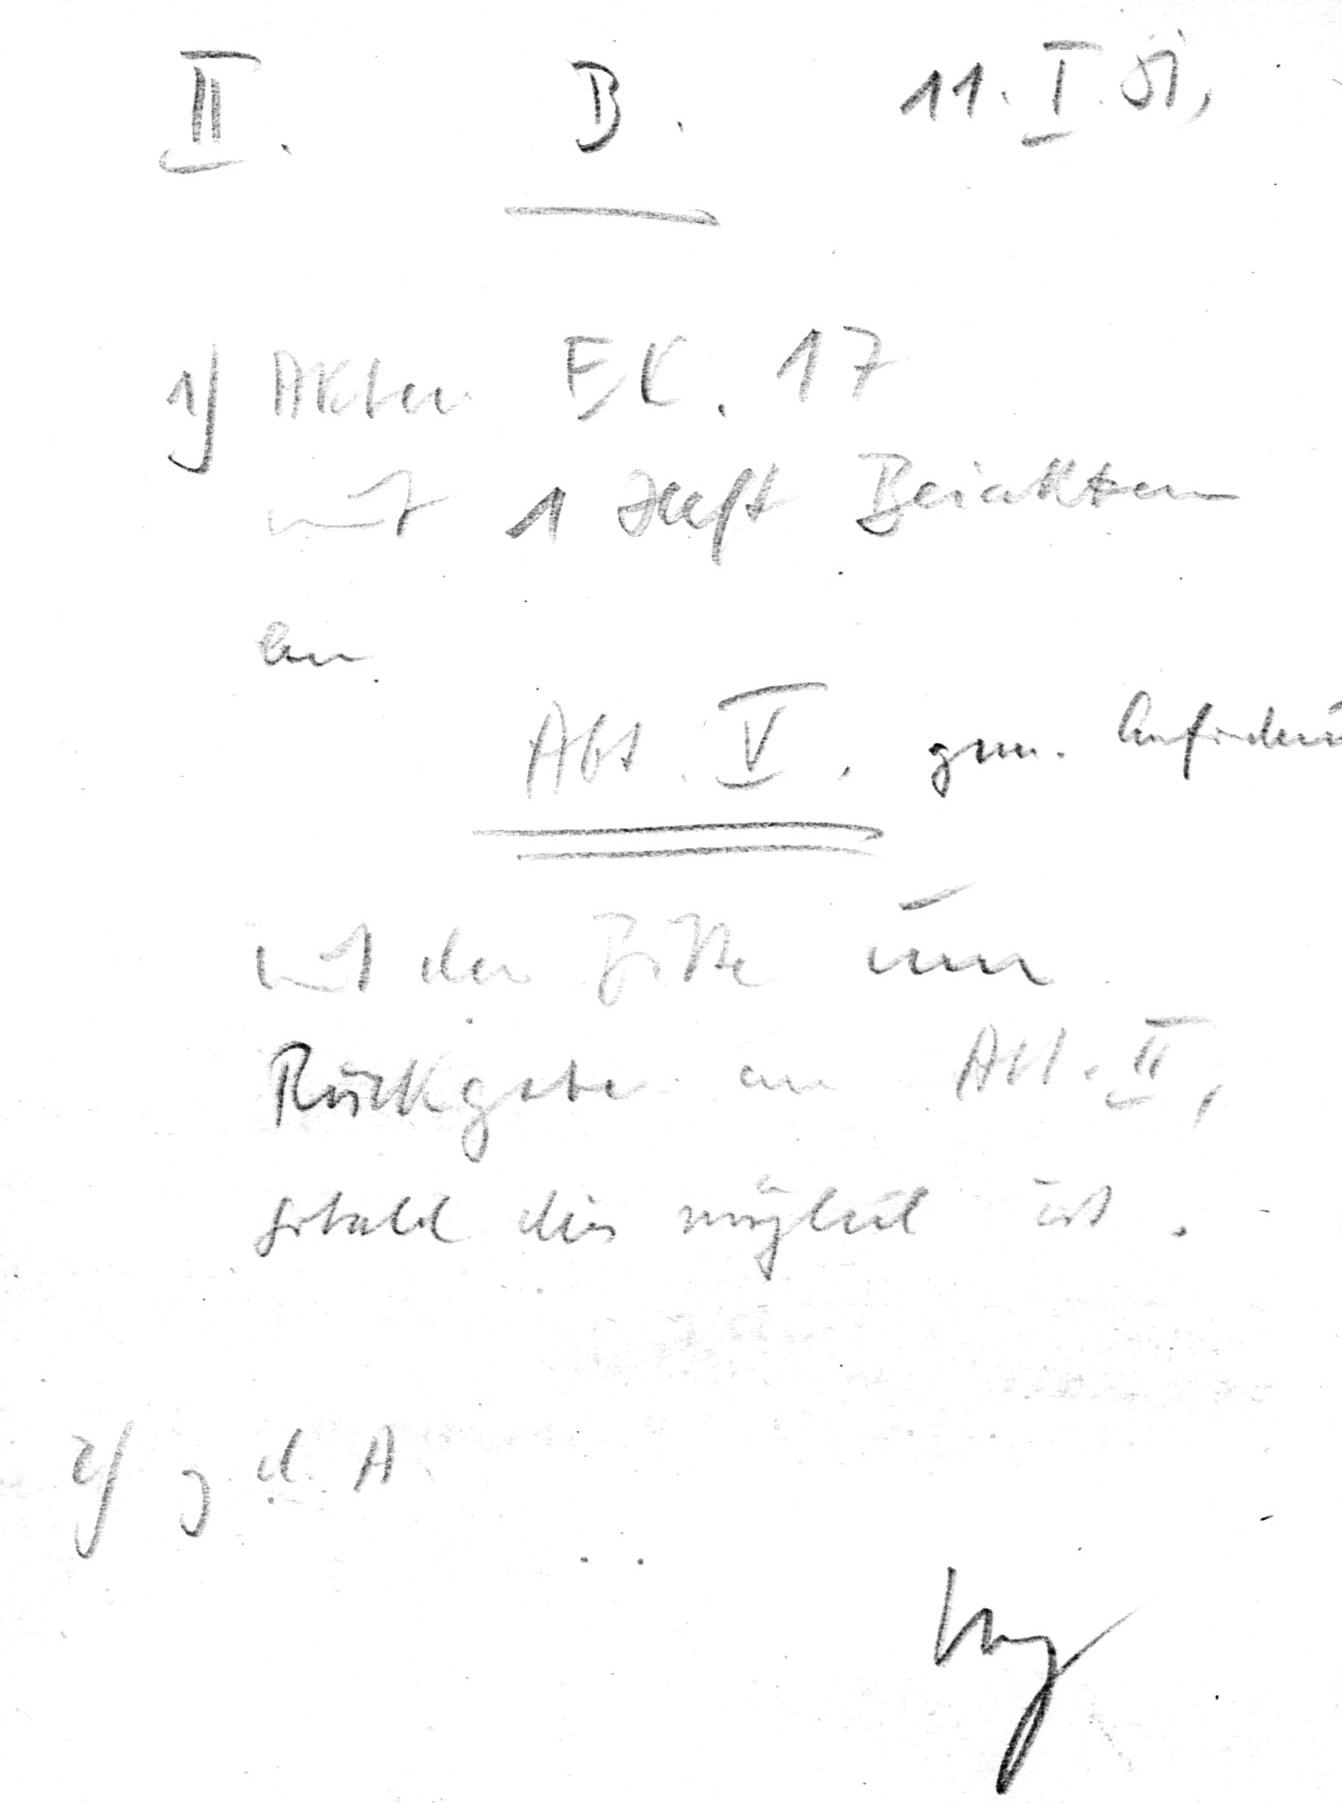 II. B. 11. I. 51,
1) Akten EK. 17
mit 1 Heft Beiakten
an
Abt. V, gem. Anforderu
mit der Bitte um
Rückgabe an Abt. II,
sobald dies möglich ist.
2) z. d. A.